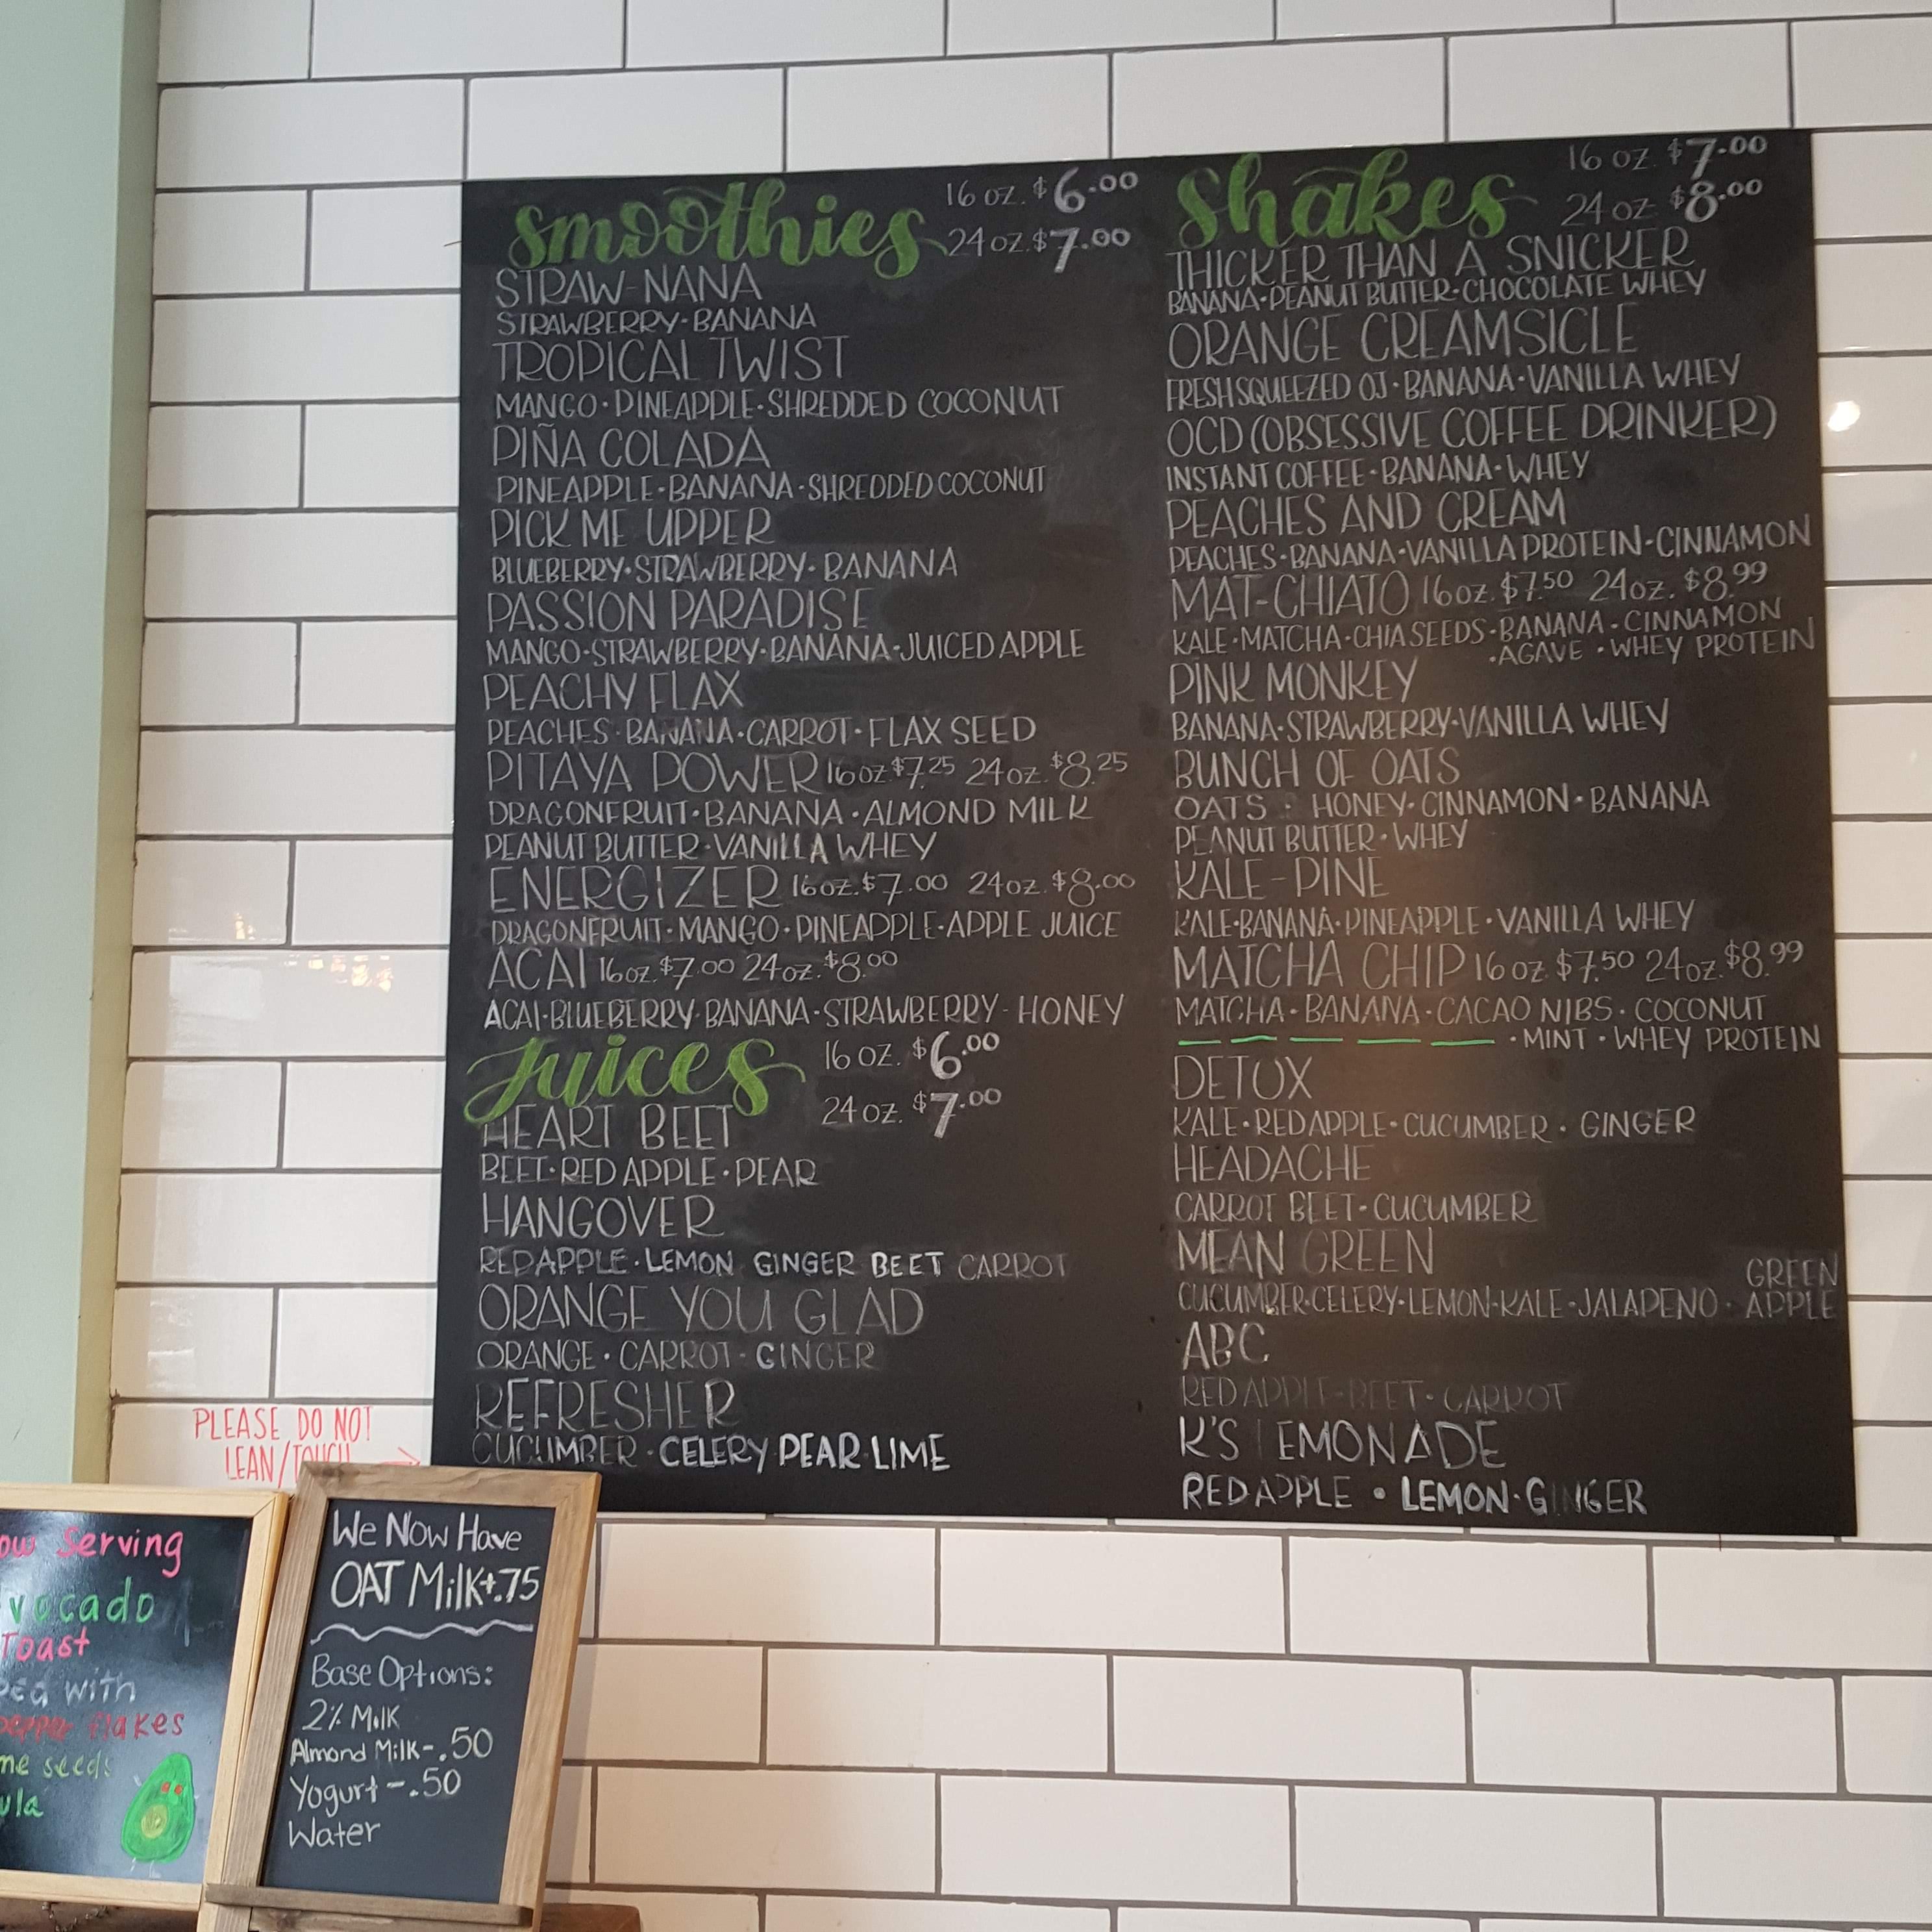 Smoothies 16 oz. $6.00
24 oz. $7.00
STRAW-NANA
STRAWBERRY·BANANA
TROPICAL TWIST
MANGO·PINEAPPLE·SHREDDED COCONUT
PIÑA COLADA
PINEAPPLE·BANANA·SHREDDED COCONUT
PICK ME UPPER
BLUEBERRY·STRAWBERRY·BANANA
PASSION PARADISE
MANGO·STRAWBERRY·BANANA·JUICED APPLE
PEACHY FLAX
PEACHES·BANANA·CARROT·FLAX SEED
PITAYA POWER 16 oz $7.25 24 oz. $8.25
DRAGONFRUIT·BANANA·ALMOND MILK
PEANUT BUTTER·VANILLA WHEY
ENERGIZER 16 oz. $7.00 24 oz. $8.00
DRAGONFRUIT·MANGO·PINEAPPLE·APPLE JUICE
ACAI 16 oz. $7.00 24 oz. $8.00
ACAI·BLUEBERRY·BANANA·STRAWBERRY·HONEY
Juices 16 oz. $6.00
24 oz. $7.00
HEART BEET
BEET·RED APPLE·PEAR
HANGOVER
RED APPLE·LEMON GINGER BEET CARROT
ORANGE YOU GLAD
ORANGE·CARROT·GINGER
REFRESHER
CUCUMBER·CELERY PEAR LIME
Shakes 16 oz. $7.00
24 oz $8.00
THICKER THAN A SNICKER
BANANA·PEANUT BUTTER·CHOCOLATE WHEY
ORANGE CREAMSICLE
FRESH SQUEEZED OJ·BANANA·VANILLA WHEY
OCD (OBSESSIVE COFFEE DRINKER)
INSTANT COFFEE·BANANA·WHEY
PEACHES AND CREAM
PEACHES·BANANA·VANILLA PROTEIN·CINNAMON
MAT-CHIATO 16 oz. $7.50 24 oz. $8.99
KALE·MATCHA·CHIA SEEDS·BANANA·CINNAMON
·AGAVE·WHEY PROTEIN
PINK MONKEY
BANANA·STRAWBERRY·VANILLA WHEY
BUNCH OF OATS
OATS·HONEY·CINNAMON·BANANA
PEANUT BUTTER·WHEY
KALE-PINE
KALE·BANANA·PINEAPPLE·VANILLA WHEY
MATCHA CHIP 16 oz $7.50 24 oz. $8.99
MATCHA·BANANA·CACAO NIBS·COCONUT
·MINT·WHEY PROTEIN
DETOX
KALE·RED APPLE·CUCUMBER·GINGER
HEADACHE
CARROT BEET·CUCUMBER
MEAN GREEN
GREEN
CUCUMBER·CELERY·LEMON·KALE·JALAPENO·APPLE
ABC
RED APPLE·BEET·CARROT
K'S LEMONADE
RED APPLE·LEMON·GINGER
PLEASE DO NOT
LEAN/TOUCH
ow Serving
vocado
Toast
ped with
pepper flakes
me seeds
ula
We Now Have
OAT Milk+.75
Base Options:
2% Milk
Almond Milk-.50
Yogurt-.50
Water